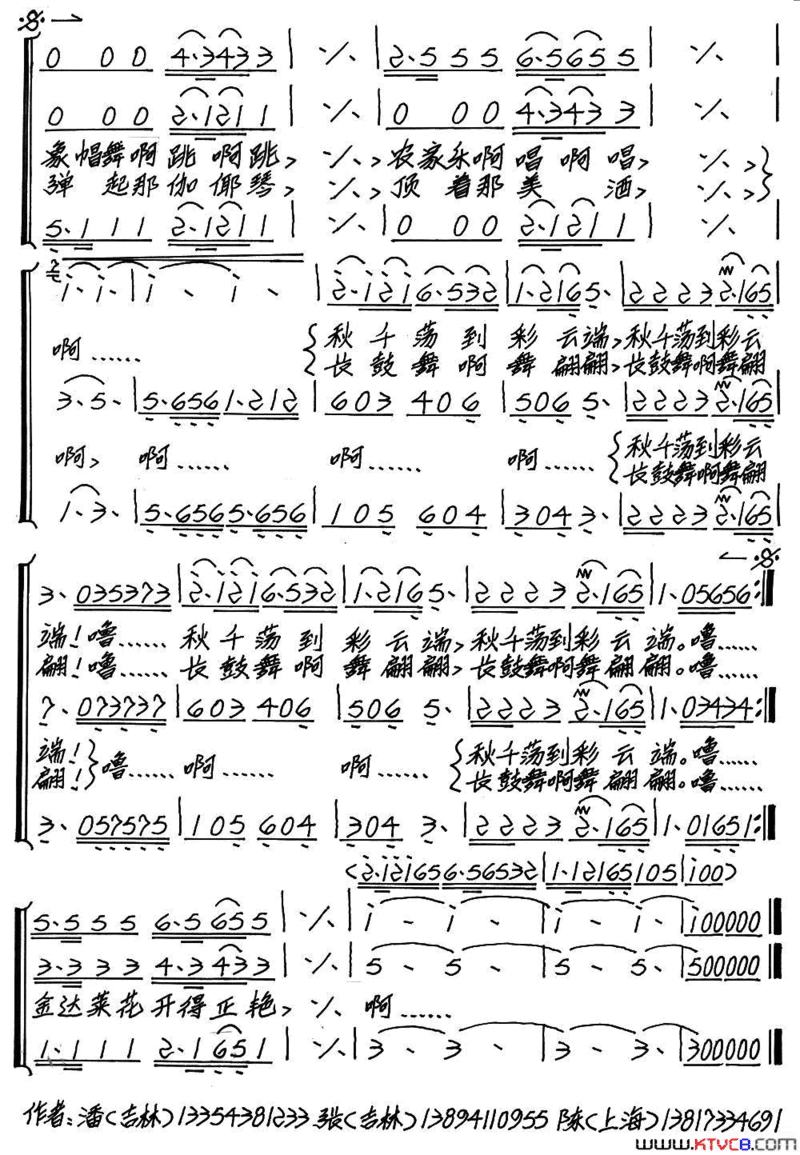 𝄋→
0 0 0 4·3433 | ·/· | 2·5 5 5 6·5655 | ·/· |
0 0 0 2·1211 | ·/· | 0 0 0 4·3433 | ·/· |
象帽舞啊跳啊跳, ·/·, 农家乐啊唱啊唱, ·/·,
弹起那伽倻琴, ·/·, 顶着那美酒, ·/·,
5·1 1 1 2·1211 | ·/· | 0 0 0 2·1211 | ·/· |
1·1· | 1· 1· | 2·121 6·532 | 1·2165· | 2 2 2 3 2·165 |
啊…… {秋千荡到彩云端,秋千荡到彩云
长鼓舞啊舞翩翩,长鼓舞啊舞翩
3·5· | 5·656 1·212 | 603 406 | 506 5· | 2 2 2 3 2·165 |
啊, 啊…… 啊…… 啊…… {秋千荡到彩云
长鼓舞啊舞翩
1·3· | 5·6565·656 | 105 604 | 304 3· | 2 2 2 3 2·165 |
←𝄋
3·035373 | 2·1216·532 | 1·2165· | 2 2 2 3 2·165 | 1·05656 :‖
端!噜…… 秋千荡到彩云端,秋千荡到彩云端。噜……
翩!噜…… 长鼓舞啊舞翩翩,长鼓舞啊舞翩翩。噜……
7·073737 | 603 406 | 506 5· | 2 2 2 3 2·165 | 1·03434 :‖
端!}噜…… 啊…… 啊…… {秋千荡到彩云端。噜……
翩! 长鼓舞啊舞翩翩。噜……
3·057575 | 105 604 | 304 3· | 2 2 2 3 2·165 | 1·01651 :‖
<2·12165 6·56532 | 1·12165 105 | 100>
5·5 5 5 6·5 655 | ·/· | 1 - 1 - | 1 - 1 - | 100000 ‖
3·3 3 3 4·3 433 | ·/· | 5 - 5 - | 5 - 5 - | 500000 ‖
金达莱花开得正艳, ·/· 啊……
1·1 1 1 2·1 651 | ·/· | 3 - 3 - | 3 - 3 - | 300000 ‖
作者:潘(吉林)13354381233 张(吉林)13894110955 陈(上海)13817334691
www.KTVC8.com